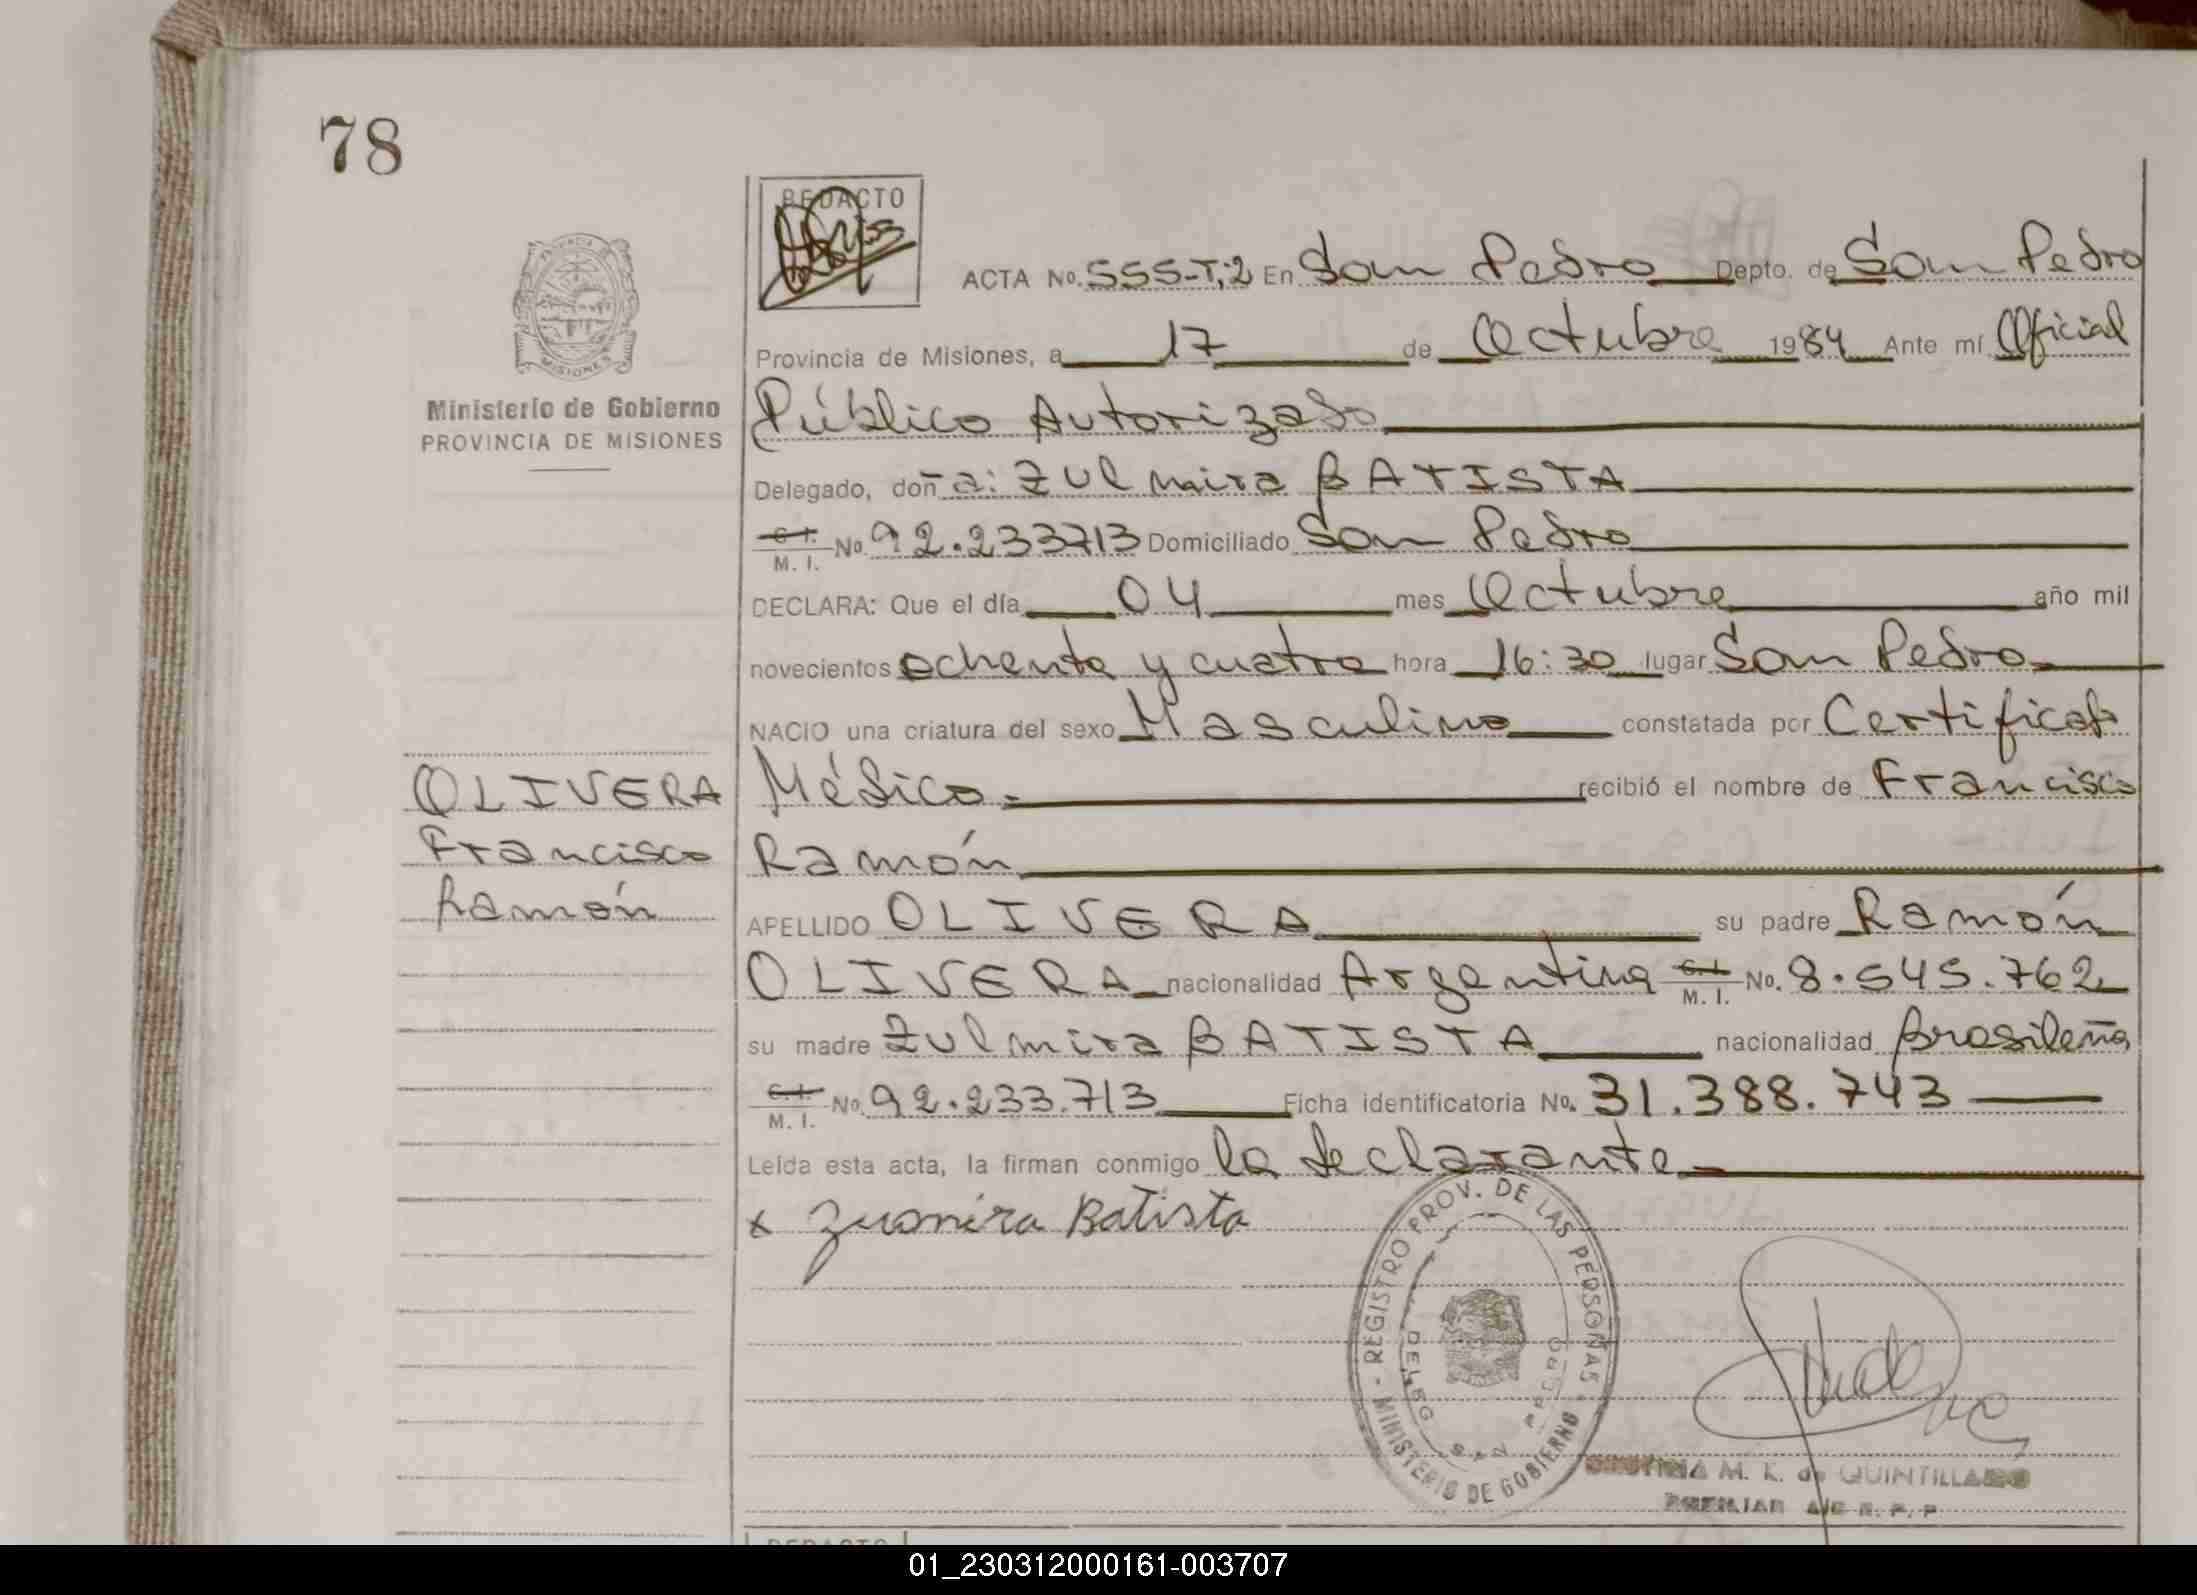 78
REDACTO
ACTA No. 555-T;2 En San Pedro Depto. de San Pedro
Provincia de Misiones, a 17 de Octubre 1984 Ante mí Oficial
Ministerio de Gobierno
PROVINCIA DE MISIONES
Público Autorizado
Delegado, doña: Zulmira BATISTA
C. I. M. I. No. 92.233713 Domiciliado San Pedro
DECLARA: Que el día 04 mes Octubre año mil
novecientos ochenta y cuatro hora 16:30 lugar San Pedro
NACIO una criatura del sexo Masculino constatada por Certificado
Médico.- recibió el nombre de Francisco
Ramón
OLIVERA
Francisco
Ramón
APELLIDO OLIVERA su padre Ramón
OLIVERA nacionalidad Argentina C. I. M. I. No. 8.545.762
su madre Zulmira BATISTA nacionalidad Brasileña
C. I. M. I. No. 92.233.713 Ficha identificatoria No. 31.388.743
Leída esta acta, la firman conmigo la declarante
x Zumira Batista
REGISTRO PROV. DE LAS PERSONAS - MINISTERIO DE GOBIERNO -
DELEG. SAN PEDRO
M. K. de QUINTILLANO
REDACTO
01_230312000161-003707